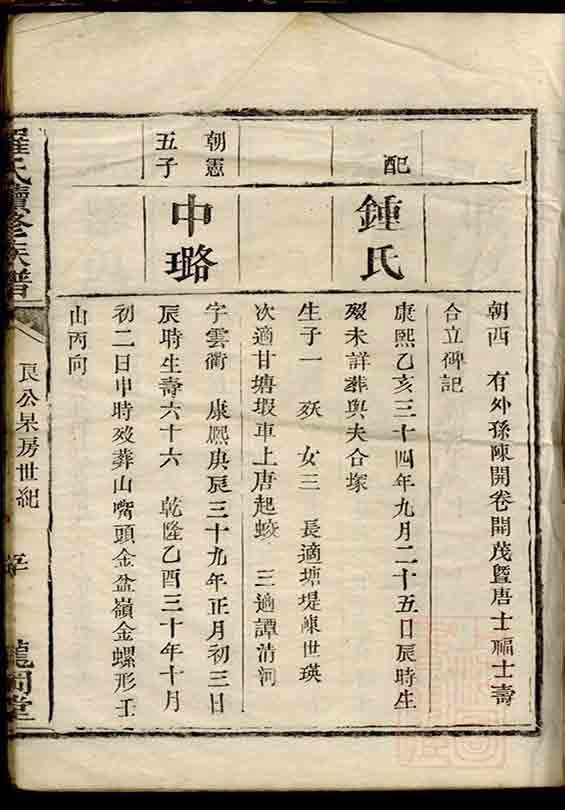 朝西　有外孫陳開卷開茂暨唐士福士壽
合立碑記
配
鍾氏
康熙乙亥三十四年九月二十五日辰時生
歿未詳葬與夫合塚
生子一　殀　女三　長適塘堤陳世瑛
次適甘塘塅車上唐起蛟　三適譚清河
朝憲
五子
中璐
字雲衢　康熙庚辰三十九年正月初三日
辰時生壽六十六　乾隆乙酉三十年十月
初二日申時歿葬山嘴頭金盆嶺金螺形壬
山丙向
羅氏續修族譜
艮公杲房世紀